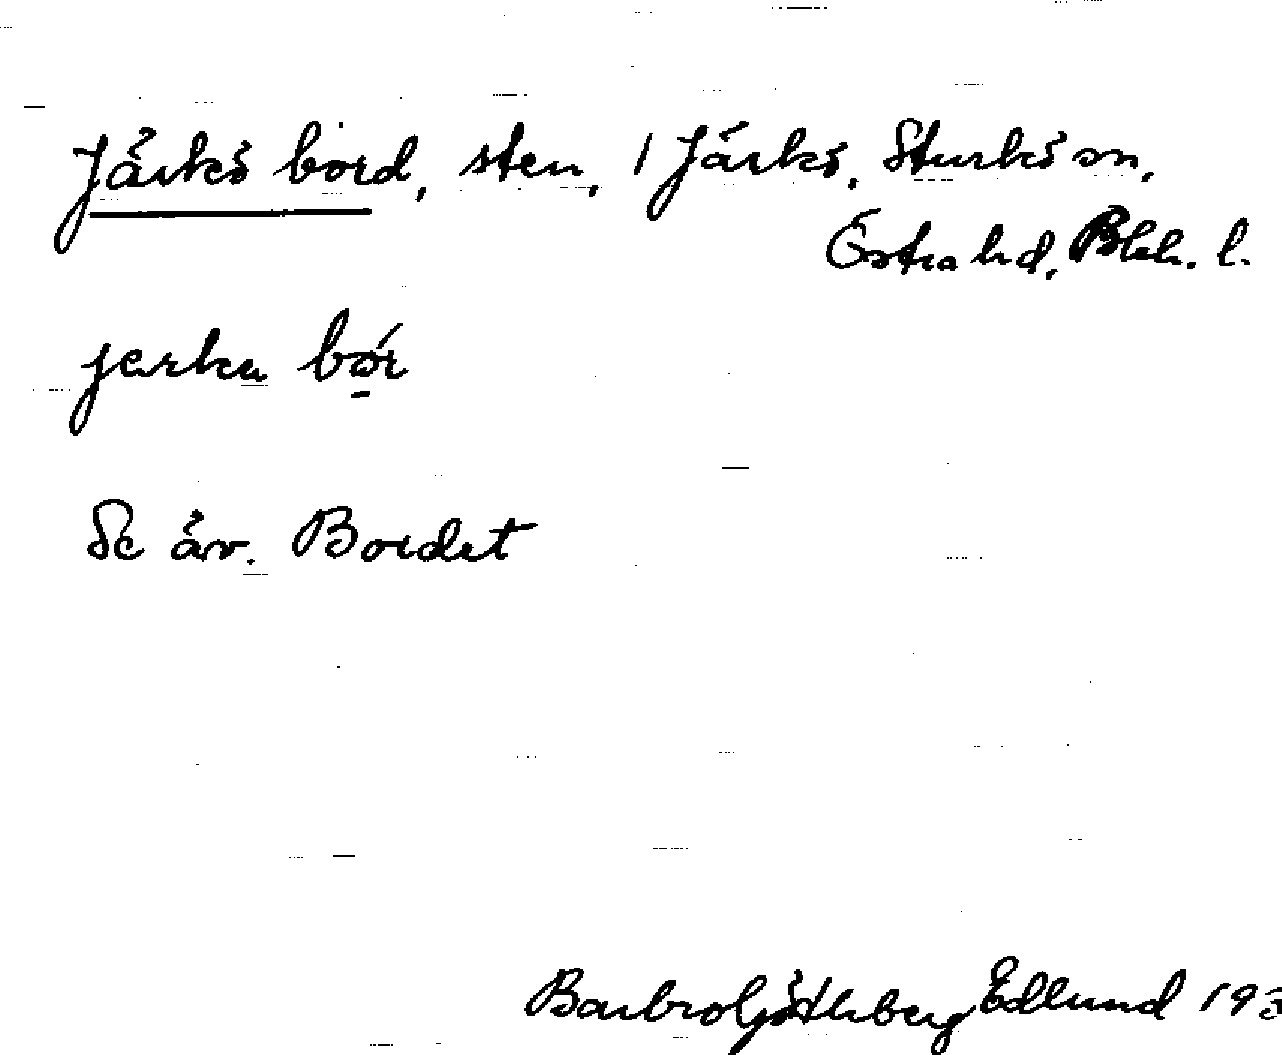 Järkö bord, sten, i Järkö, Sturkö sn,
Östra hd, Blek. l.
jarka bór
Se äv. Bordet
Barbro Götherberg Edlund 193